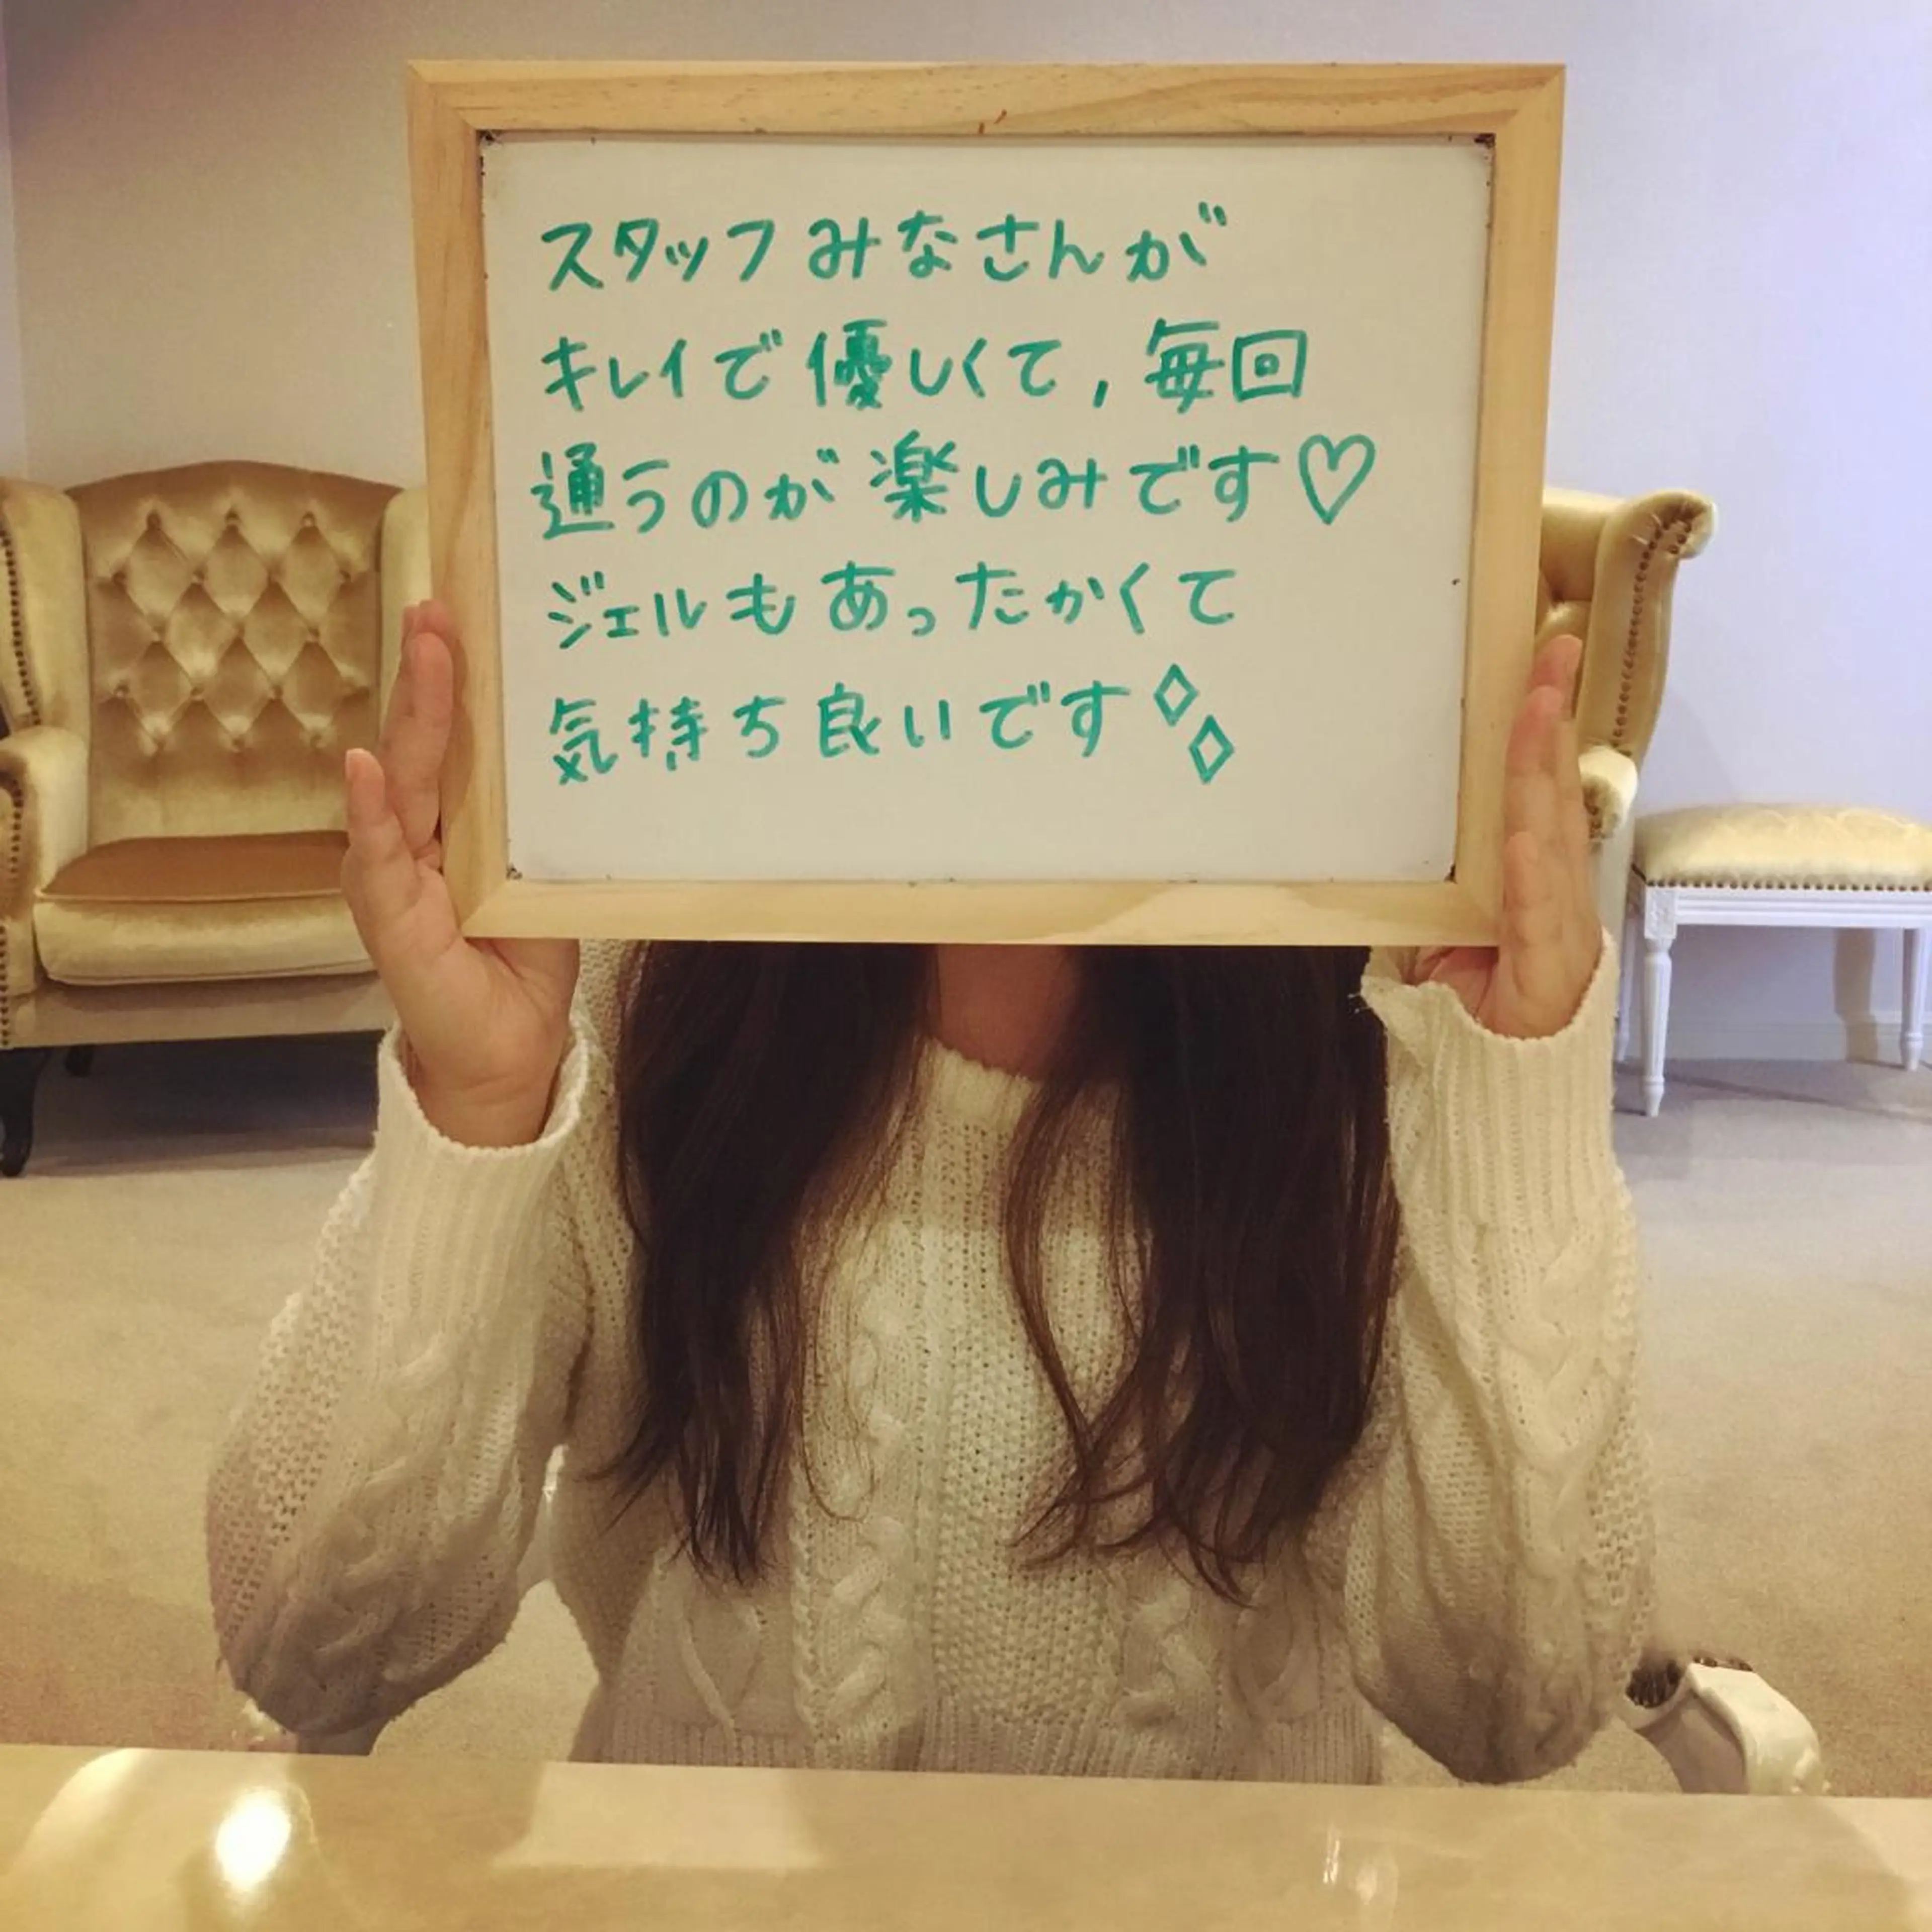 スタッフみなさんが
キレイで優しくて,毎回
通うのが楽しみです♡
ジェルもあったかくて
気持ち良いです